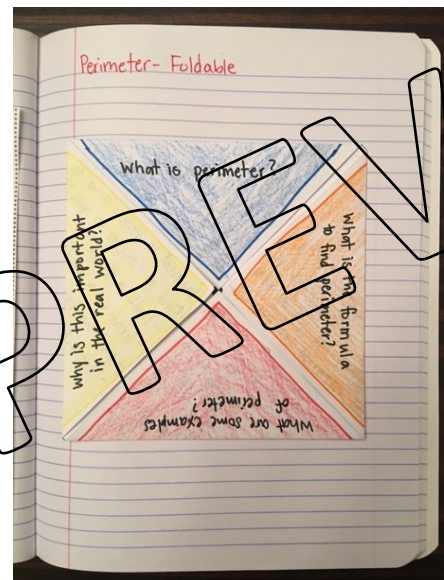 Perimeter- Foldable
What is perimeter?
What is the formula
to find perimeter?
What are some examples
of perimeter?
Why is this important
in the real world?
PREV